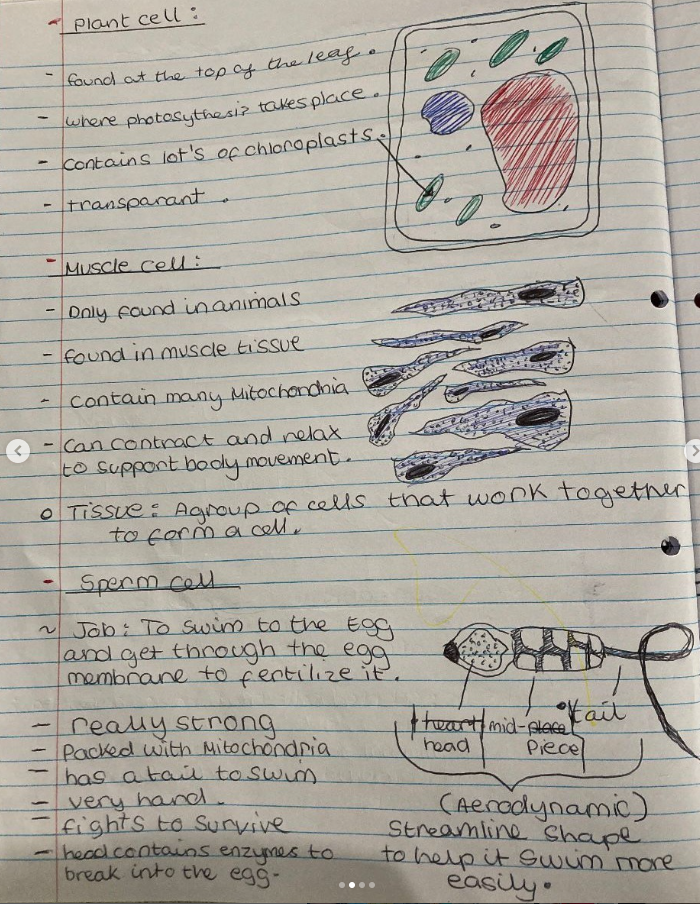 - Plant cell:
- found at the top of the leaf.
- where photosythesis takes place.
- contains lot's of chloroplasts.
- transparant.
- Muscle cell:
- Only found in animals
- found in muscle tissue
- contain many Mitochondria
- Can contract and relax
to support body movement.
o Tissue: A group of cells that work together
to form a cell.
- Sperm cell
~ Job: To swim to the Egg
and get through the egg
membrane to fertilize it.
- really strong
- Packed with Mitochondria
- has a tail to swim
- very hard.
- fights to survive
- head contains enzymes to
break into the egg.
heart mid-place tail
head piece
(Aerodynamic)
Streamline shape
to help it swim more
easily.